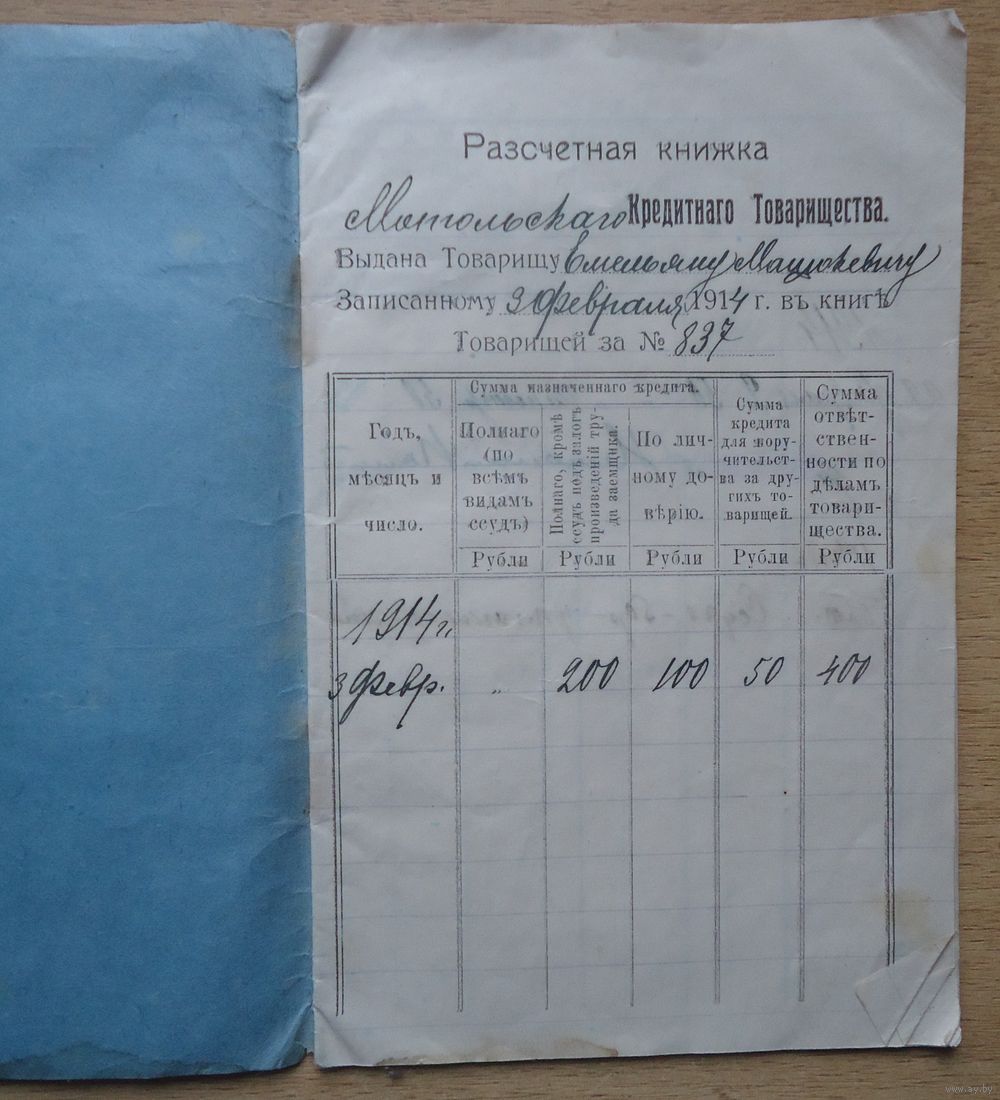 Разсчетная книжка
Мотольскаго Кредитнаго Товарищества.
Выдана Товарищу Емельяну Мацукевичу
Записанному 3 февраля 1914 г. въ книгѣ
Товарищей за № 837
Годъ,
мѣсяцъ и
число.
Сумма назначеннаго кредита.
Полнаго
(по
всѣмъ
видамъ
ссудъ)
Полнаго, кромѣ
ссудъ подъ залогъ
произведеній тру-
да заемщика.
По лич-
ному до-
вѣрію.
Сумма
кредита
для пору-
чительст-
ва за дру-
гихъ то-
варищей.
Сумма
отвѣт-
ствен-
ности по
дѣламъ
товари-
щества.
Рубли Рубли Рубли Рубли Рубли
1914 г.
3 февр. „ 200 100 50 400
www.ay.by